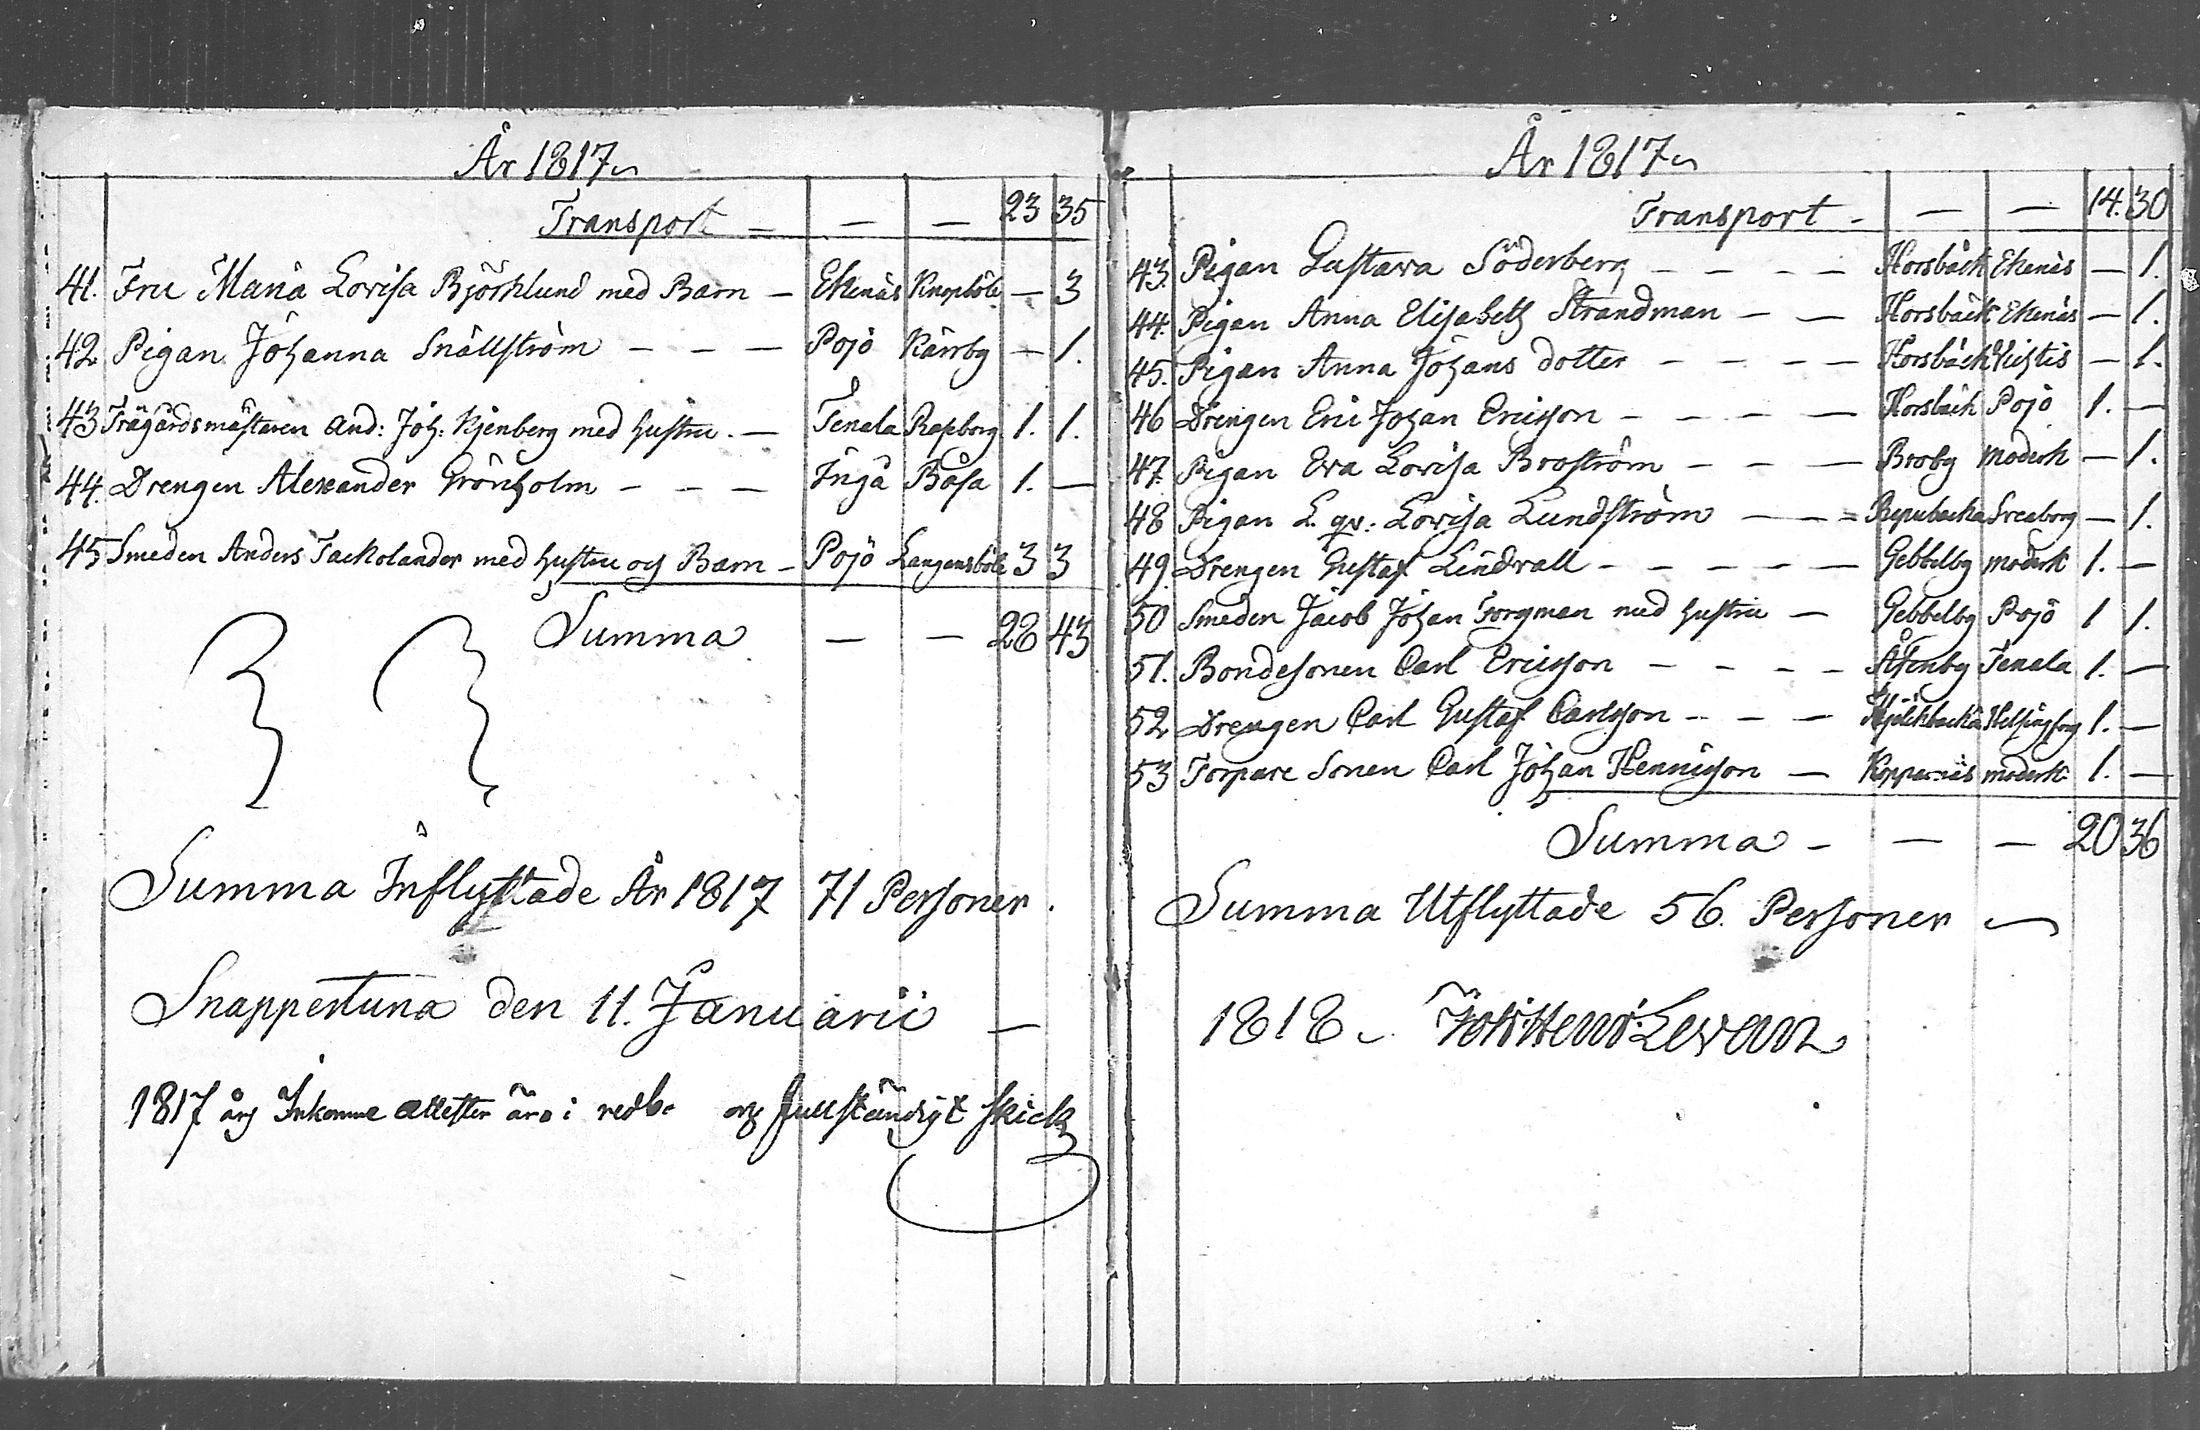 År 1817
Transport - - - 23 35
41. Fru Maria Lovisa Björklund med Barn - Ekenäs Knopböle - 3
42 Pigan Johanna Snällström - - - Pojo Kärrby - 1.
43 Trägårdsmästaren And: Joh: Kjenberg med hustru. - Tenala Raseborg 1. 1.
44. Drengen Alexander Grönholm - - - Ingå Båsa 1. -
45 Smeden Anders Tackolander med hustru och Barn - Pojo Langansböle 3 3
Summa - - 28 43
Summa Inflyttade År 1817 71 Personer.
Snappertuna den 11. Januarii -
1817 års Inkomne attester äro i redb. och fullständigt skick
År 1817
Transport - - - 14. 30
43. Pigan Gustava Söderberg - - - - Horsbäck Ekenäs - 1.
44. Pigan Anna Elisabeth Strandman - - Horsbäck Ekenäs - 1.
45. Pigan Anna Johans dotter - - - - Horsbäck Vichtis - 1.
46 Drengen Eric Johan Ericsson - - - - Horsbäck Pojo 1. -
47. Pigan Eva Lovisa Broström - - - Broby moderk - 1.
48 Pigan L. qv: Lovisa Lundström - - - Repubacka Sveaborg - 1.
49. Drengen Gustaf Lindvall - - - - - Gebbelby moderk 1. -
50 Smeden Jacob Johan Forgman med hustru - Gebbelby Pojo 1 1.
51. Bondesonen Carl Ericsson - - - - Åsenby Tenala 1. -
52 Drengen Carl Gustaf Carlsson - - - Kjölckbacka Helsingfors 1. -
53 Torpare Sonen Carl Johan Henricsson - Koppernäs moderk 1. -
Summa - - - 20 36
Summa Utflyttade 56. Personer
1818. Joh: Henr: Levan